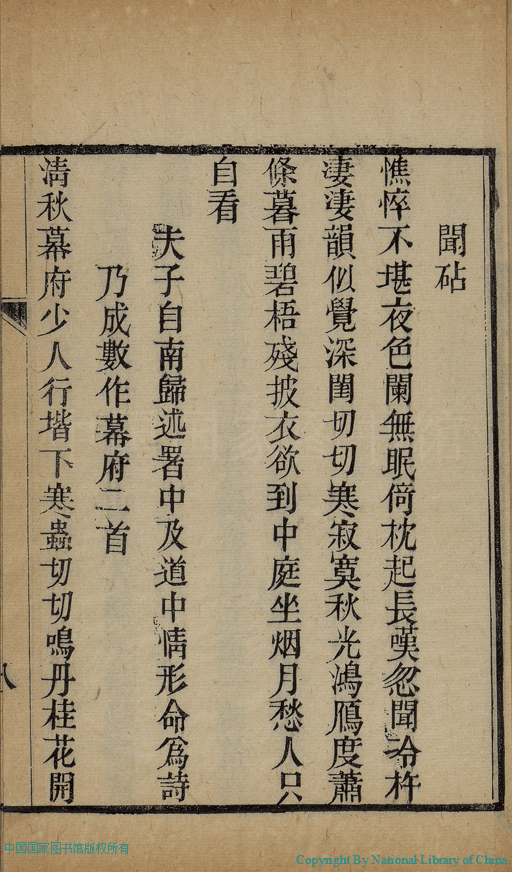 聞砧
憔悴不堪夜色闌無眠倚枕起長嘆忽聞冷杵
凄凄韻似覺深閨切切寒寂寞秋光鴻鴈度蕭
條暮雨碧梧殘披衣欲到中庭坐烟月愁人只
自看
夫子自南歸述署中及道中情形命爲詩
乃成數作幕府二首
清秋幕府少人行堦下寒蟲切切鳴丹桂花開
八
中国国家图书馆版权所有
Copyright By National Library of China